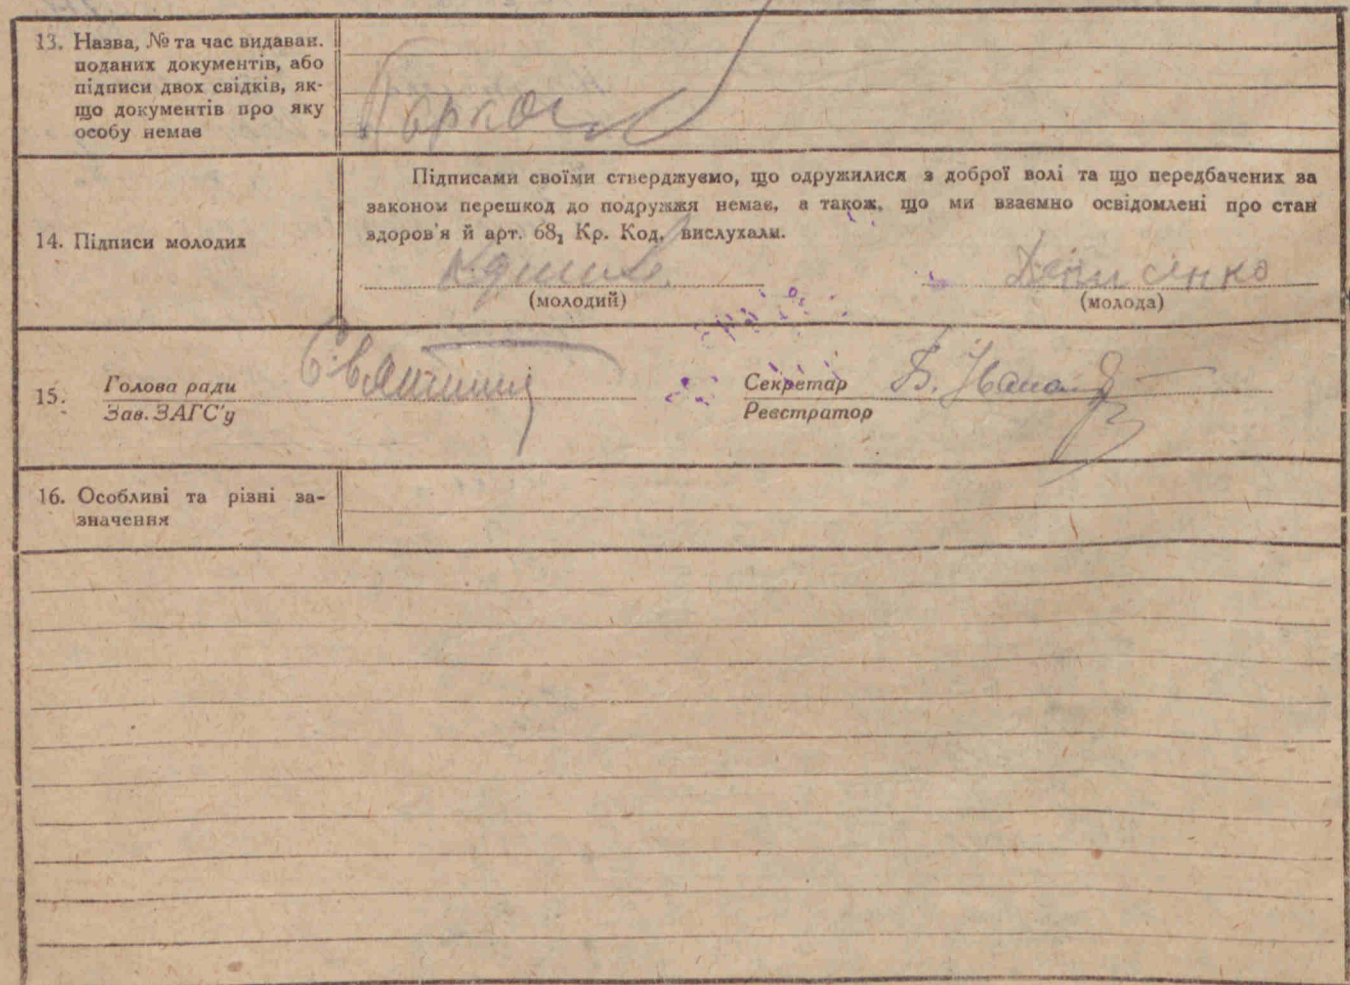 13. Назва, № та час видаван.
поданих документів, або
підписи двох свідків, як-
що документів про яку
особу немає
Підписами своїми стверджуємо, що одружилися з доброї волі та що передбачених за
законом перешкод до подружжя немає, а також, що ми взаємно освідомлені про стан
здоров'я й арт. 68₁ Кр. Код. вислухали.
14. Підписи молодих
Денисенко
(молодий) (молода)
15. Голова ради Секретар
Зав. ЗАГС'у Реєстратор
16. Особливі та різні за-
значення